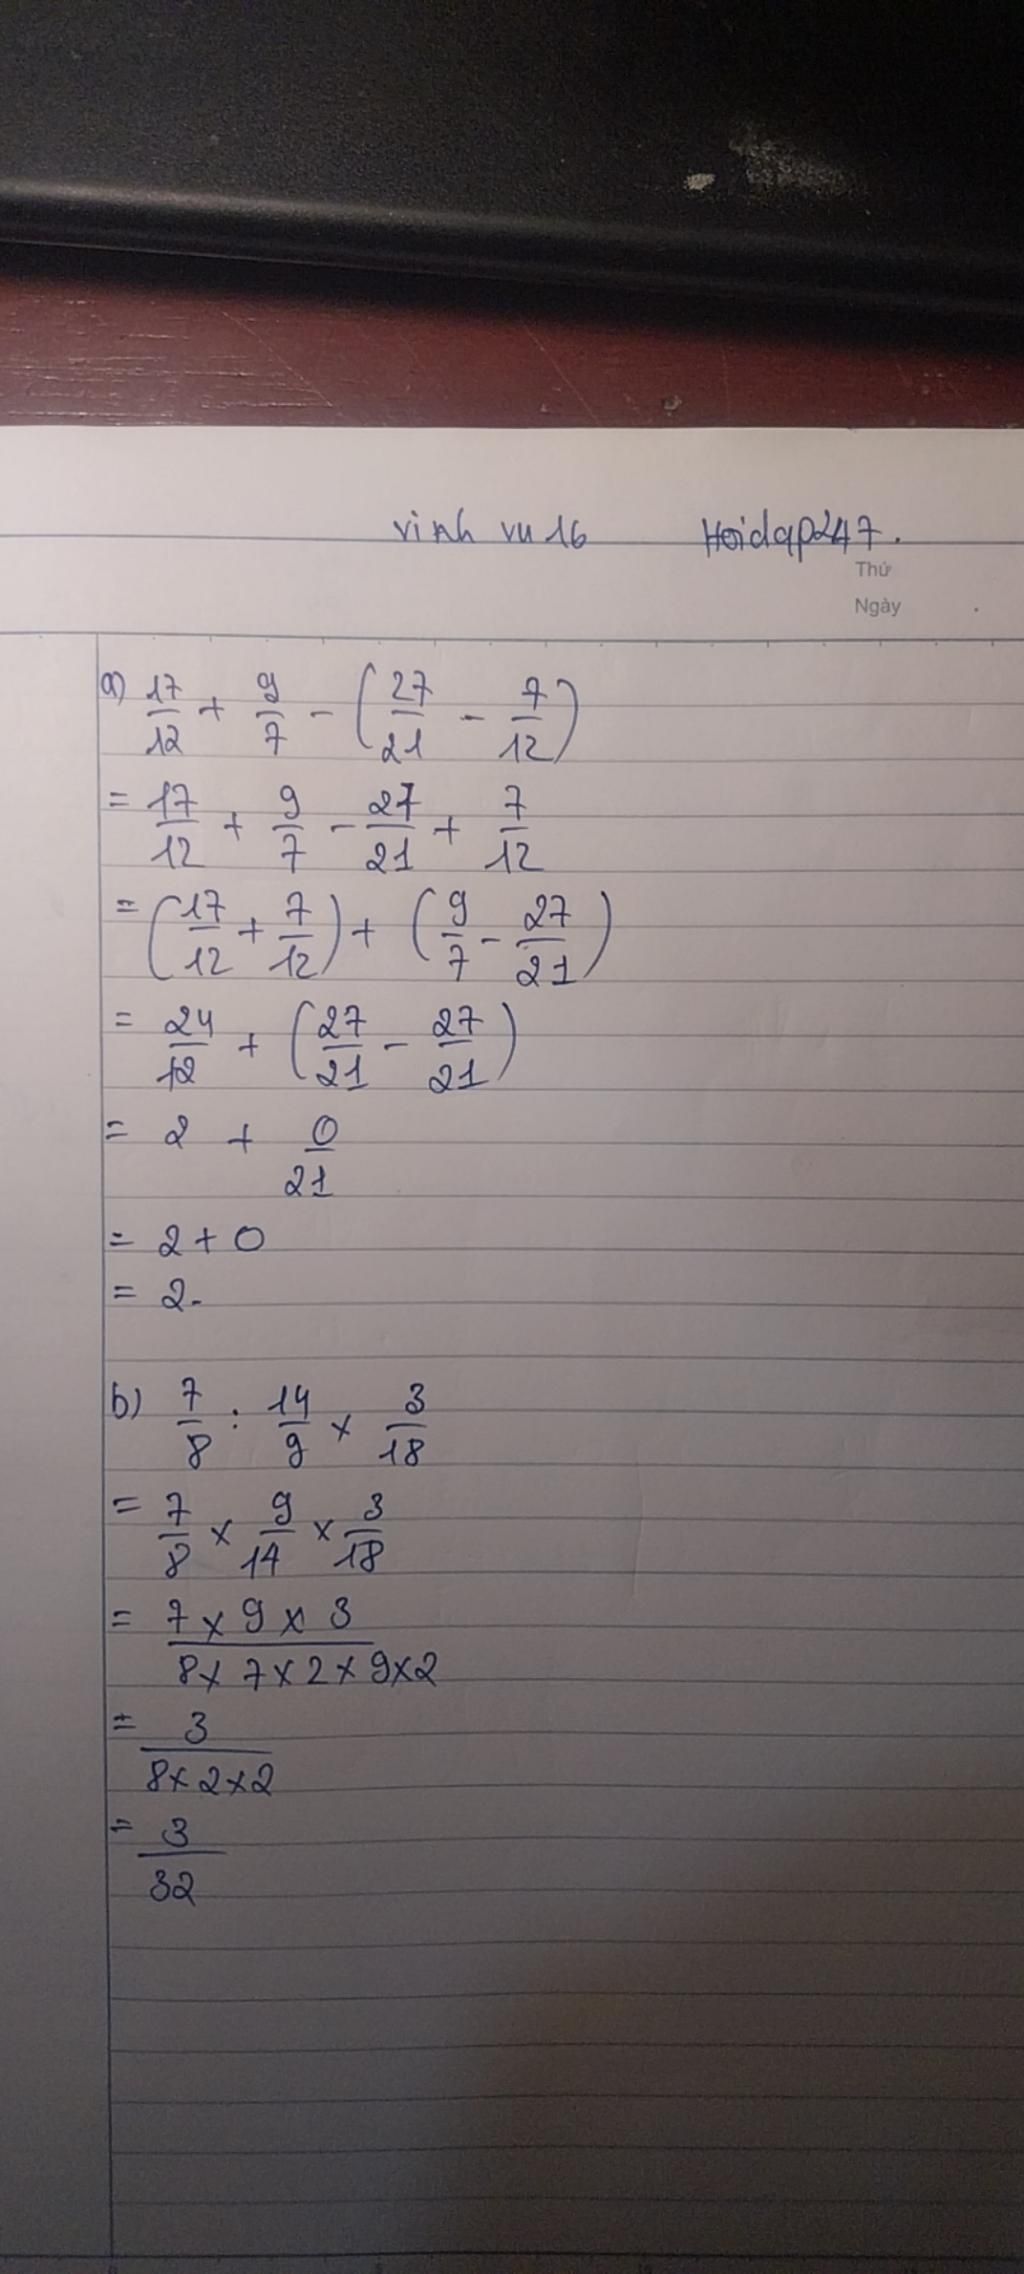 vinh vu 16 Hoidap247.
Thứ
Ngày
a) 17/12 + 9/7 - (27/21 - 7/12)
= 17/12 + 9/7 - 27/21 + 7/12
= (17/12 + 7/12) + (9/7 - 27/21)
= 24/12 + (27/21 - 27/21)
= 2 + 0/21
= 2 + 0
= 2.
b) 7/8 : 14/9 × 3/18
= 7/8 × 9/14 × 3/18
= 7 × 9 × 3 / 8 × 7 × 2 × 9 × 2
= 3 / 8 × 2 × 2
= 3/32